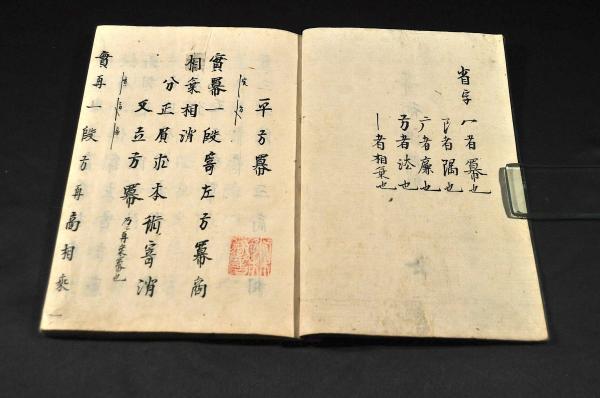 省字
冖者冪也
阝者隅也
广者廉也
方者法也
丨者相乗也
平方冪
實冪一段寄左方冪商
相乗相消
分正原求本術寄消
又立方冪
實再一段方再商相乗